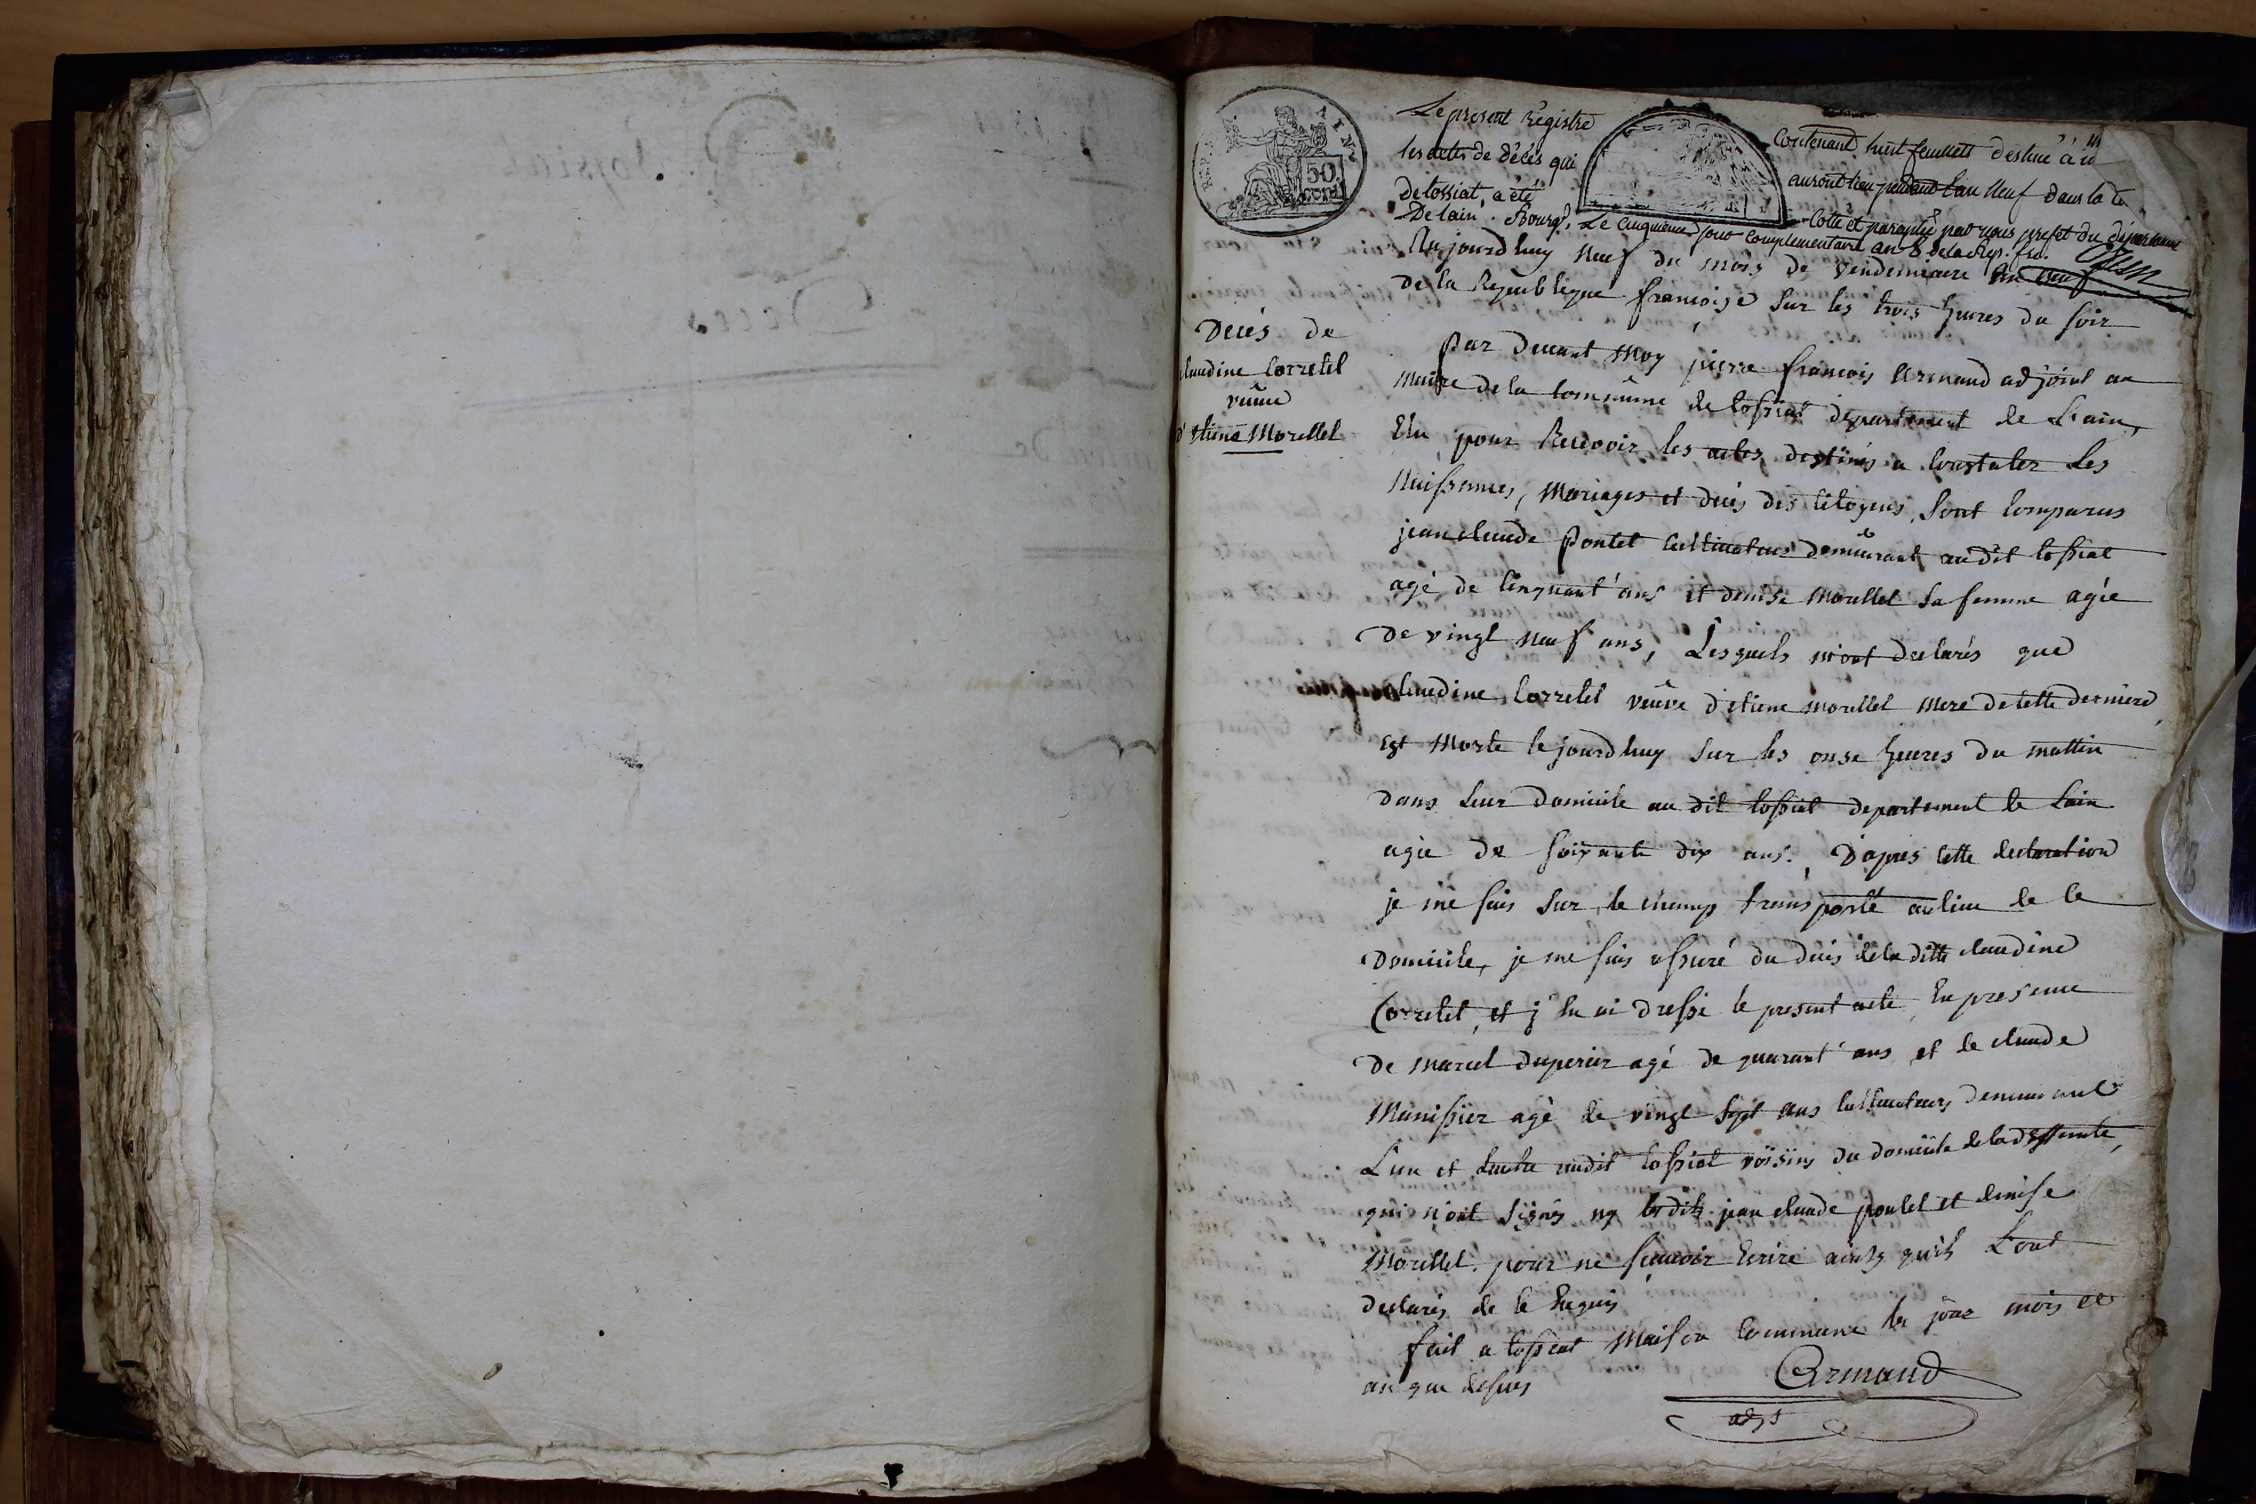 Le present Régistre contenant huit feuillets destiné à
les actes de Décès qui auront lieu pendant l'an Neuf dans la
De Cossiat, a été Cotté et paraphé par nous prefet du département
De L'ain. Bourg, Le Cinquieme jour complementaire an 8 de la Rep. fr.
Aujourdhuy Neuf du mois de vendemiaire an neuf
de la Republique françoise sur les trois heures du soir
Décés de
Claudine Corretel
veuve
d'Etiene Morellet
par devant moy pierre françois Armand adjoint au
Maire de la Commune de Cossiat département de L'ain,
Elu pour Recevoir les actes destinés a Constater Les
Naissences, Mariages et decés des Citoyens, sont Comparus
jean claude Pontet Cultivateur demeurant audit Cossiat
agé de Cinquant'ans et denise Morellet sa femme agée
de vingt neuf ans, Lesquels m'ont declarés que
Claudine Corretel veuve d'Etiene morellet mere de cette derniere,
Est Morte ce jourdhuy sur les onse heures du mattin
dans Leur domicile au dit Cossiat departement de Lain
agée de soixante dix ans. D'apres cette declaration
je me suis sur le champ transporté au lieu de ce
domicile, je me suis assuré du decés de la ditte claudine
Corretel, et j'en ai dressé le present acte, En presence
de marcel duperier agé de quarant'ans et de claude
Manissier agé de vingt sept ans Cultivateurs demeurant
L'un et L'autre audit Cossiat voisins du domicile de la deffunte,
qui n'ont signés ny les dits jean claude pontet et denise
Morellet pour ne sçavoir Ecrire ainsy qu'ils L'ont
declarés de ce Enquis
fait a Cossiat Maison Commune les jour mois et
an que dessus
Armand
adjt